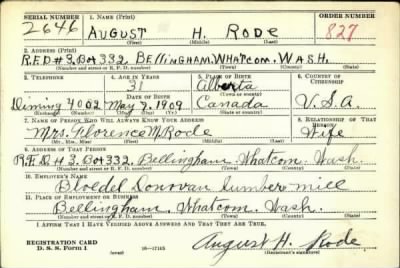 SERIAL NUMBER 1. NAME (Print) ORDER NUMBER
2646 AUGUST H. RODE 827
(First) (Middle) (Last)
2. ADDRESS (Print)
R.F.D.#3.Box332. BELLINGHAM. WHATCOM. WASH.
(Number and street or R. F. D. number) (Town) (County) (State)
3. TELEPHONE 4. AGE IN YEARS 5. PLACE OF BIRTH 6. COUNTRY OF CITIZENSHIP
31 Alberta
DATE OF BIRTH (Town or county)
Diming 4002 May 7. 1909 Canada U.S.A.
(Exchange) (Number) (Mo.) (Day) (Yr.) (State or country)
7. NAME OF PERSON WHO WILL ALWAYS KNOW YOUR ADDRESS 8. RELATIONSHIP OF THAT PERSON
Mrs. Florence M. Rode Wife
(Mr., Mrs., Miss) (First) (Middle) (Last)
9. ADDRESS OF THAT PERSON
R.F.D #3. Box332. Bellingham. Whatcom. Wash.
(Number and street or R. F. D. number) (Town) (County) (State)
10. EMPLOYER'S NAME
Bloedel Donovan lumber mill
11. PLACE OF EMPLOYMENT OR BUSINESS
Bellingham. Whatcom. Wash.
(Number and street or R. F. D. number) (Town) (County) (State)
I AFFIRM THAT I HAVE VERIFIED ABOVE ANSWERS AND THAT THEY ARE TRUE.
REGISTRATION CARD
D. S. S. Form 1 (over) 16—17145 August H. Rode
(Registrant's signature)